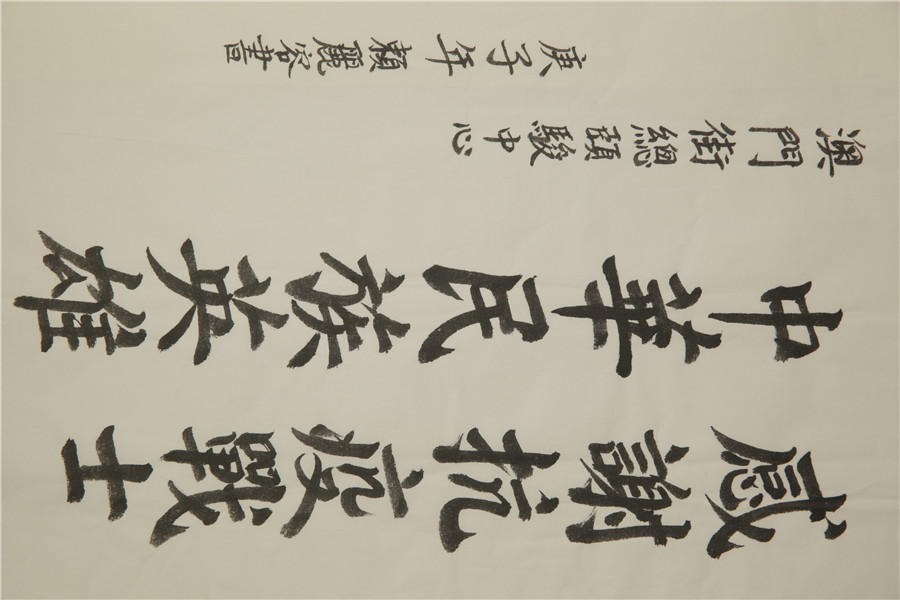 感謝抗疫戰士
中華民族英雄
澳門街總頤駿中心
庚子年賴麗容書